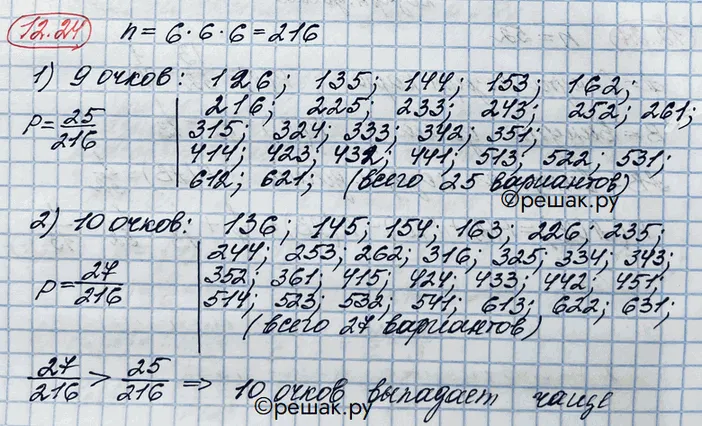 12.24 n = 6 · 6 · 6 = 216
1) 9 очков: 126; 135; 144; 153; 162;
216; 225; 233; 243; 252; 261;
P = 25/216
315; 324; 333; 342; 351;
414; 423; 432; 441; 513; 522; 531;
612; 621; (всего 25 вариантов)
©решак.ру
2) 10 очков: 136; 145; 154; 163; 226; 235;
244; 253; 262; 316; 325; 334; 343;
P = 27/216
352; 361; 415; 424; 433; 442; 451;
514; 523; 532; 541; 613; 622; 631;
(всего 27 вариантов)
27/216 > 25/216 => 10 очков выпадает чаще
©решак.ру